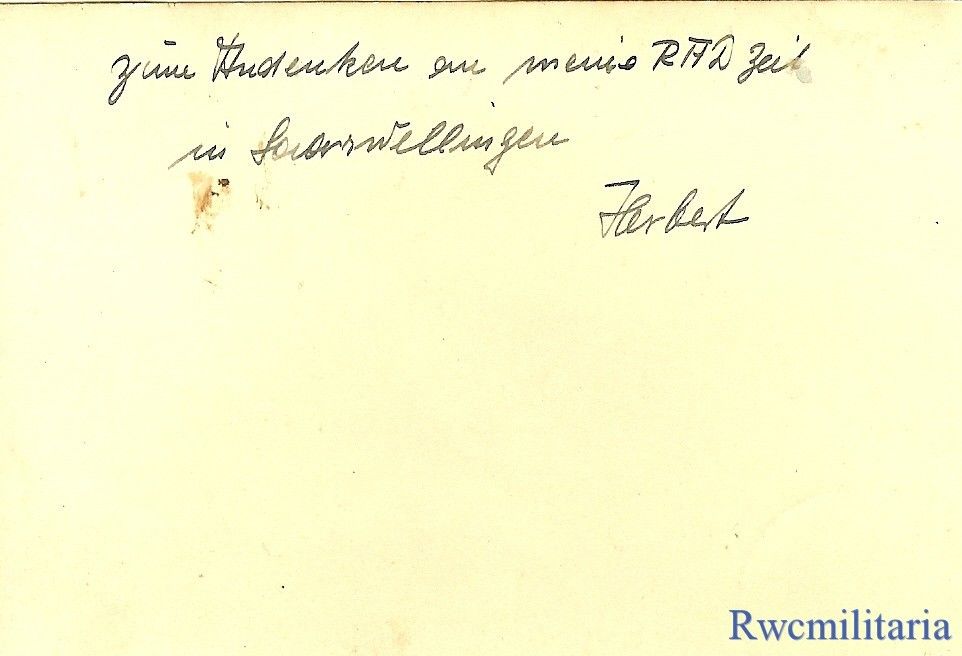 zum Andenken an meine RAD Zeit
in Saarwellingen
Herbert
Rwcmilitaria